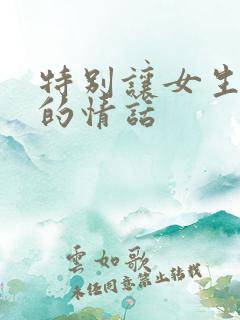 特别讓女生
的情話
雲如歌
未经同意禁止转载